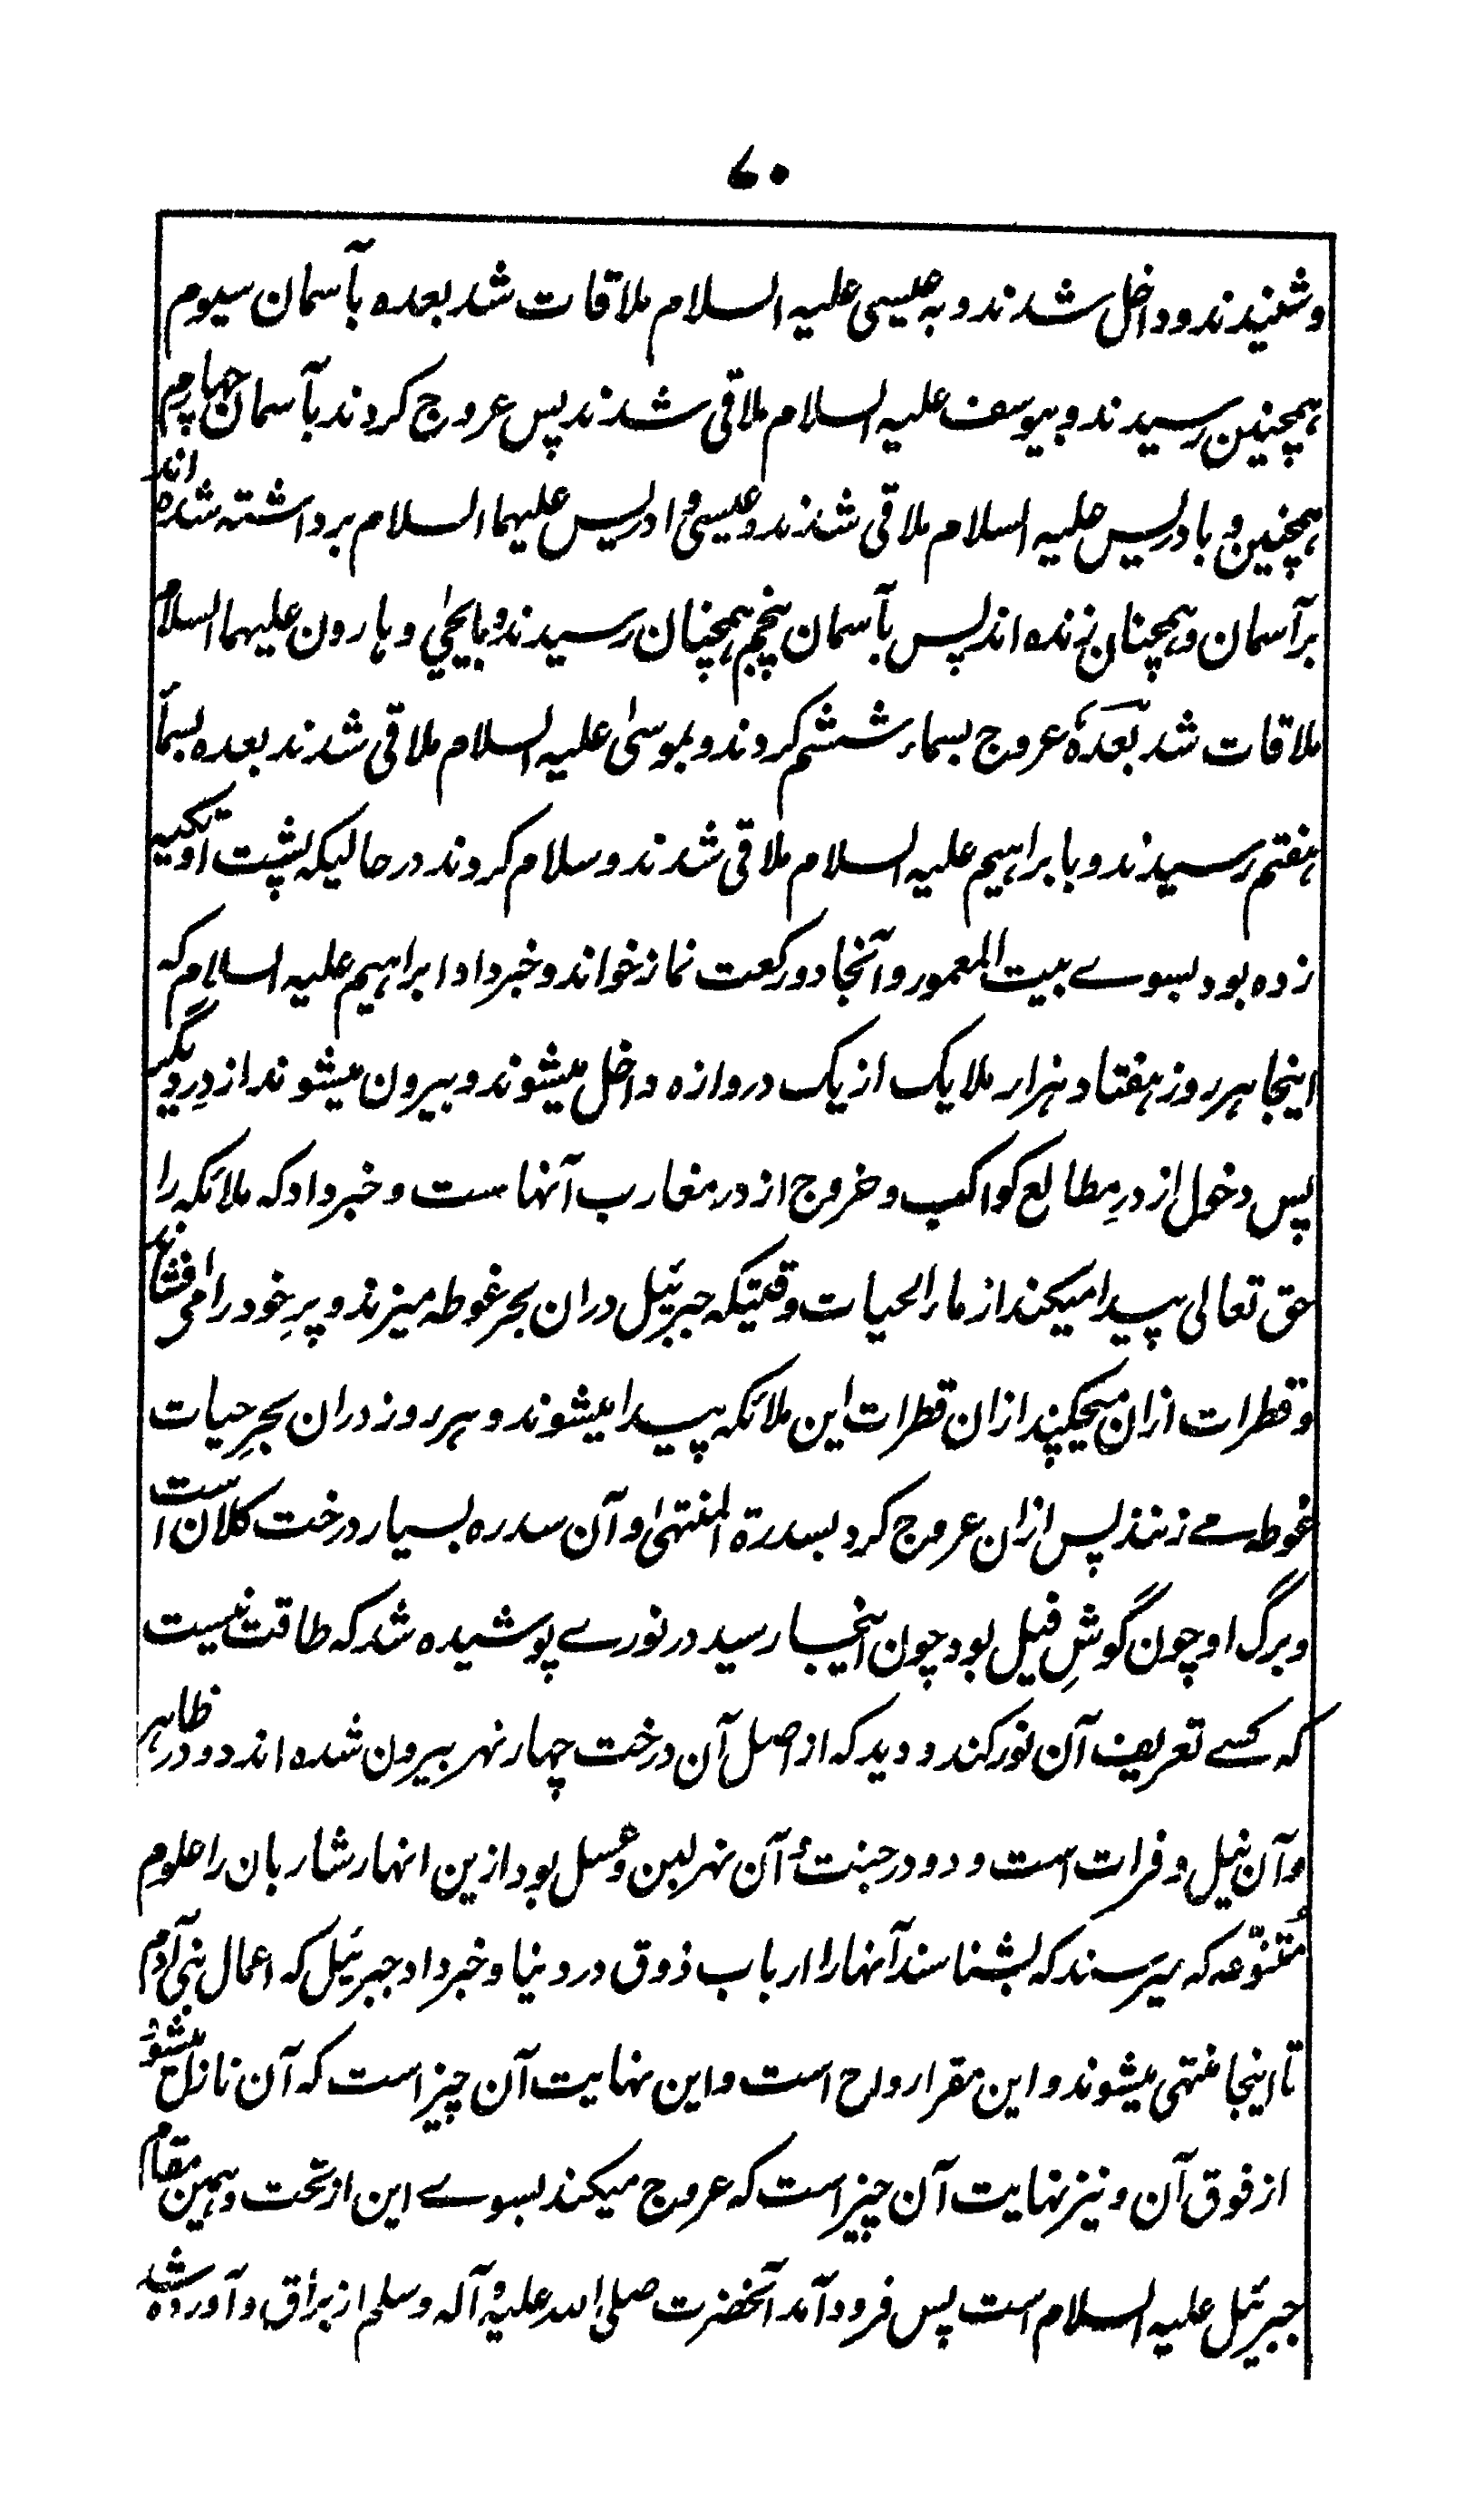 ۷۰
وشنیدند وداخل شدند و بہ عیسی علیہ السلام ملاقات شد بعدہ بآسمان سیوم
ہمچنین رسیدند و بیوسف علیہ السلام ملاقی شدند پس عروج کردند بآسمان چہارم
ہمچنین و بادریس علیہ السلام ملاقی شدند و عیسی و ادریس علیہما السلام برداشتہ شدہ اند
برآسمان وہمچنان زندہ اند پس بآسمان پنجم ہمچنان رسیدند و با یحیٰی و ہارون علیہما السلام
ملاقات شد بعدہٗ عروج بسماء ششم کردند و بموسیٰ علیہ السلام ملاقی شدند بعدہ بسمآ
ہفتم رسیدند و با براہیم علیہ السلام ملاقی شدند و سلام کردند در حالیکہ پشت او تکیہ
زدہ بود بسوے بیت المعمور و آنجا دو رکعت نماز خواند و خبر داد ابراہیم علیہ السلام کہ
اینجا ہر روز ہفتاد ہزار ملایک از یک دروازہ داخل میشوند و بیرون میشوند از درِ دیگر
پس دخول از درِ مطالع کواکب و خروج از در مغارب آنہا ست و خبر داد کہ ملائکہ را
حق تعالی پیدا میکند از ماء الحیات وقتیکہ جبرئیل دران بحر غوطہ میزند و پرِ خود را می افشاند
و قطرات ازان میچکند ازان قطرات این ملائکہ پیدا میشوند و ہر روز دران بحرِ حیات
غوطہ مے زنند پس ازان عروج کرد بسدرة المنتہیٰ و آن سدرہ بسیار درخت کلان است
و برگ او چون گوشِ فیل بود چون اینجا رسید در نورے پوشیدہ شد کہ طاقت نیست
کہ کسے تعریف آن نور کند و دید کہ از اصل آن درخت چہار نہر بیرون شدہ اند دو در ظاہر
و آن نیل و فرات است و دو در جنت آن نہر لبن و عسل بود ازین انہار شاربان را علوم
مُتنوّعہ کہ میرسند کہ بشناسند آنہا را ارباب ذوق در دنیا و خبر داد جبرئیل کہ اعمال بنی آدم
تا اینجا منتہی میشوند و این مقر ارواح است و این نہایت آن چیز است کہ آن نازل میشود
از فوق آن و نیز نہایت آن چیز است کہ عروج میکند بسوے این از تحت و ہمین مقام
جبرئیل علیہ السلام است پس فرود آمد آنحضرت صلی اللہ علیہ و آلہ وسلم از براق و آوردہ شد